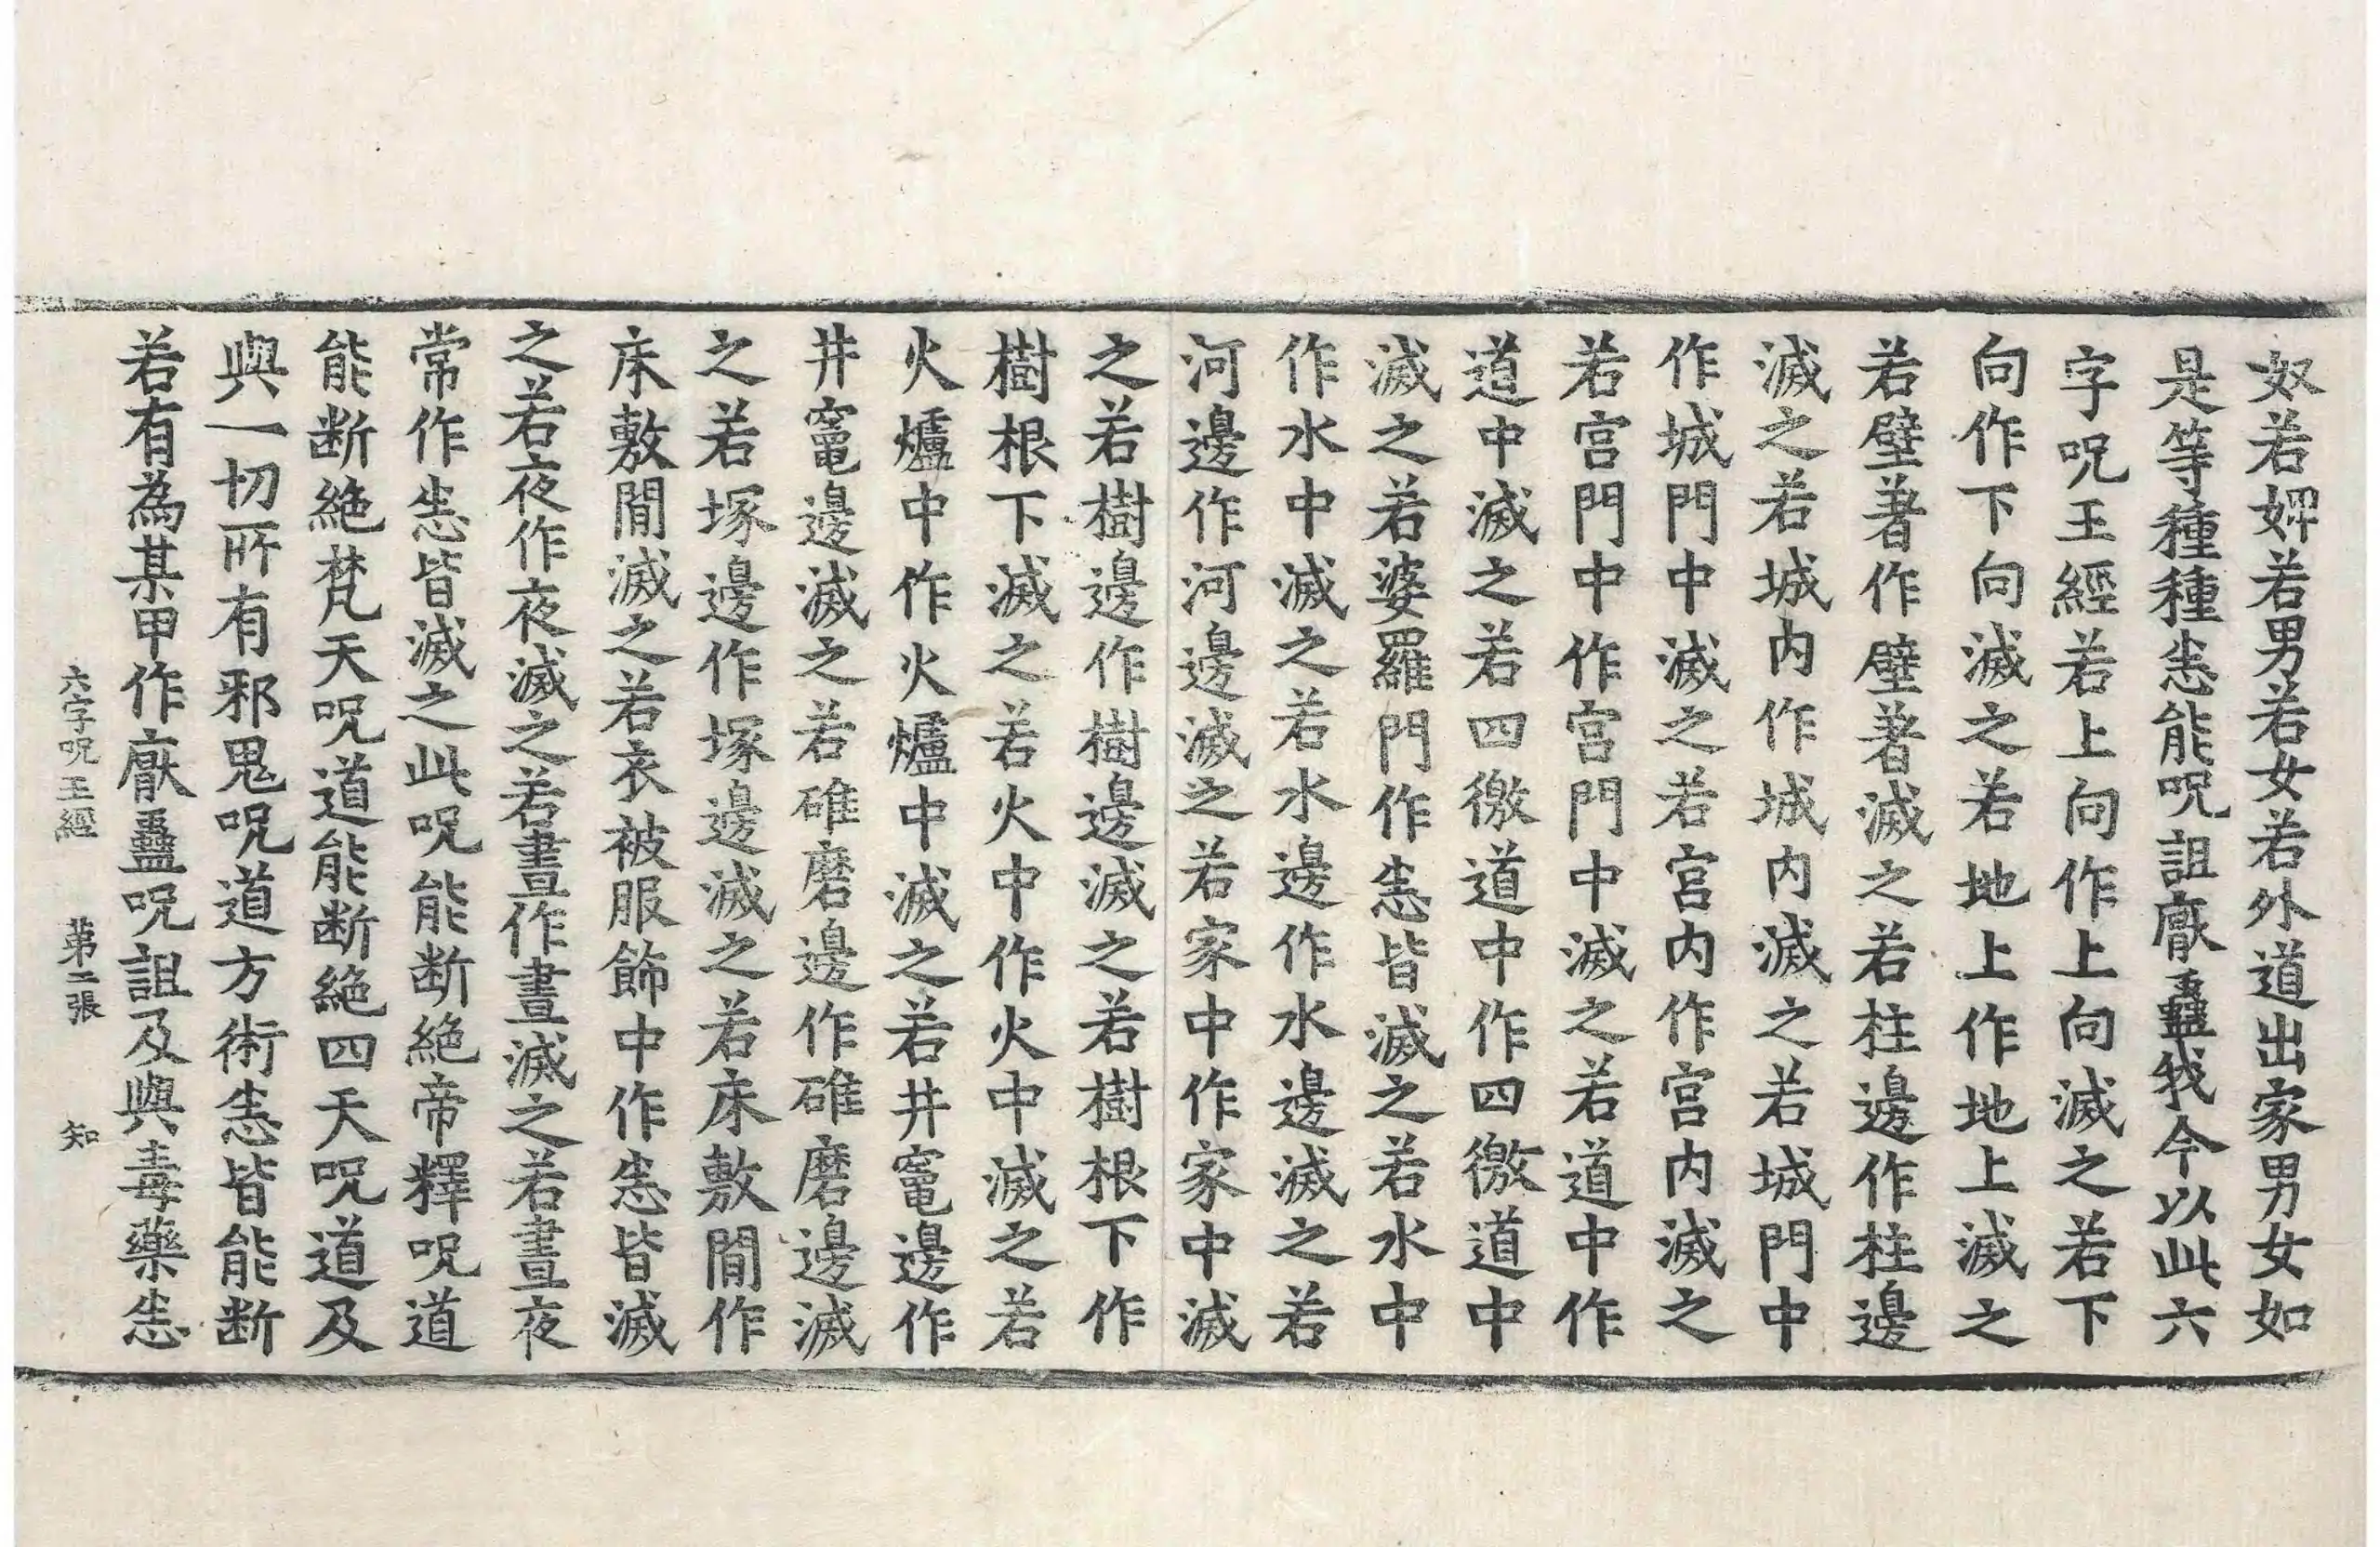 奴若婢若男若女若外道出家男女如
是等種種恙能呪詛厭蠱我今以此六
字呪王經若上向作上向滅之若下
向作下向滅之若地上作地上滅之
若壁著作壁著滅之若柱邊作柱邊
滅之若城内作城内滅之若城門中
作城門中滅之若宫内作宫内滅之
若宫門中作宫門中滅之若道中作
道中滅之若四徼道中作四徼道中
滅之若婆羅門作恙皆滅之若水中
作水中滅之若水邊作水邊滅之若
河邊作河邊滅之若家中作家中滅
之若樹邊作樹邊滅之若樹根下作
樹根下滅之若火中作火中滅之若
火爐中作火爐中滅之若井竈邊作
井竈邊滅之若碓磨邊作碓磨邊滅
之若塚邊作塚邊滅之若床敷間作
床敷間滅之若衣被服飾中作恙皆滅
之若夜作夜滅之若晝作晝滅之若晝夜
常作恙皆滅之此呪能断絶帝釋呪道
能断絶梵天呪道能断絶四天呪道及
與一切所有邪鬼呪道方術恙皆能断
若有為某甲作厭蠱呪詛及與毒藥恙
六字呪王經 第二張 知